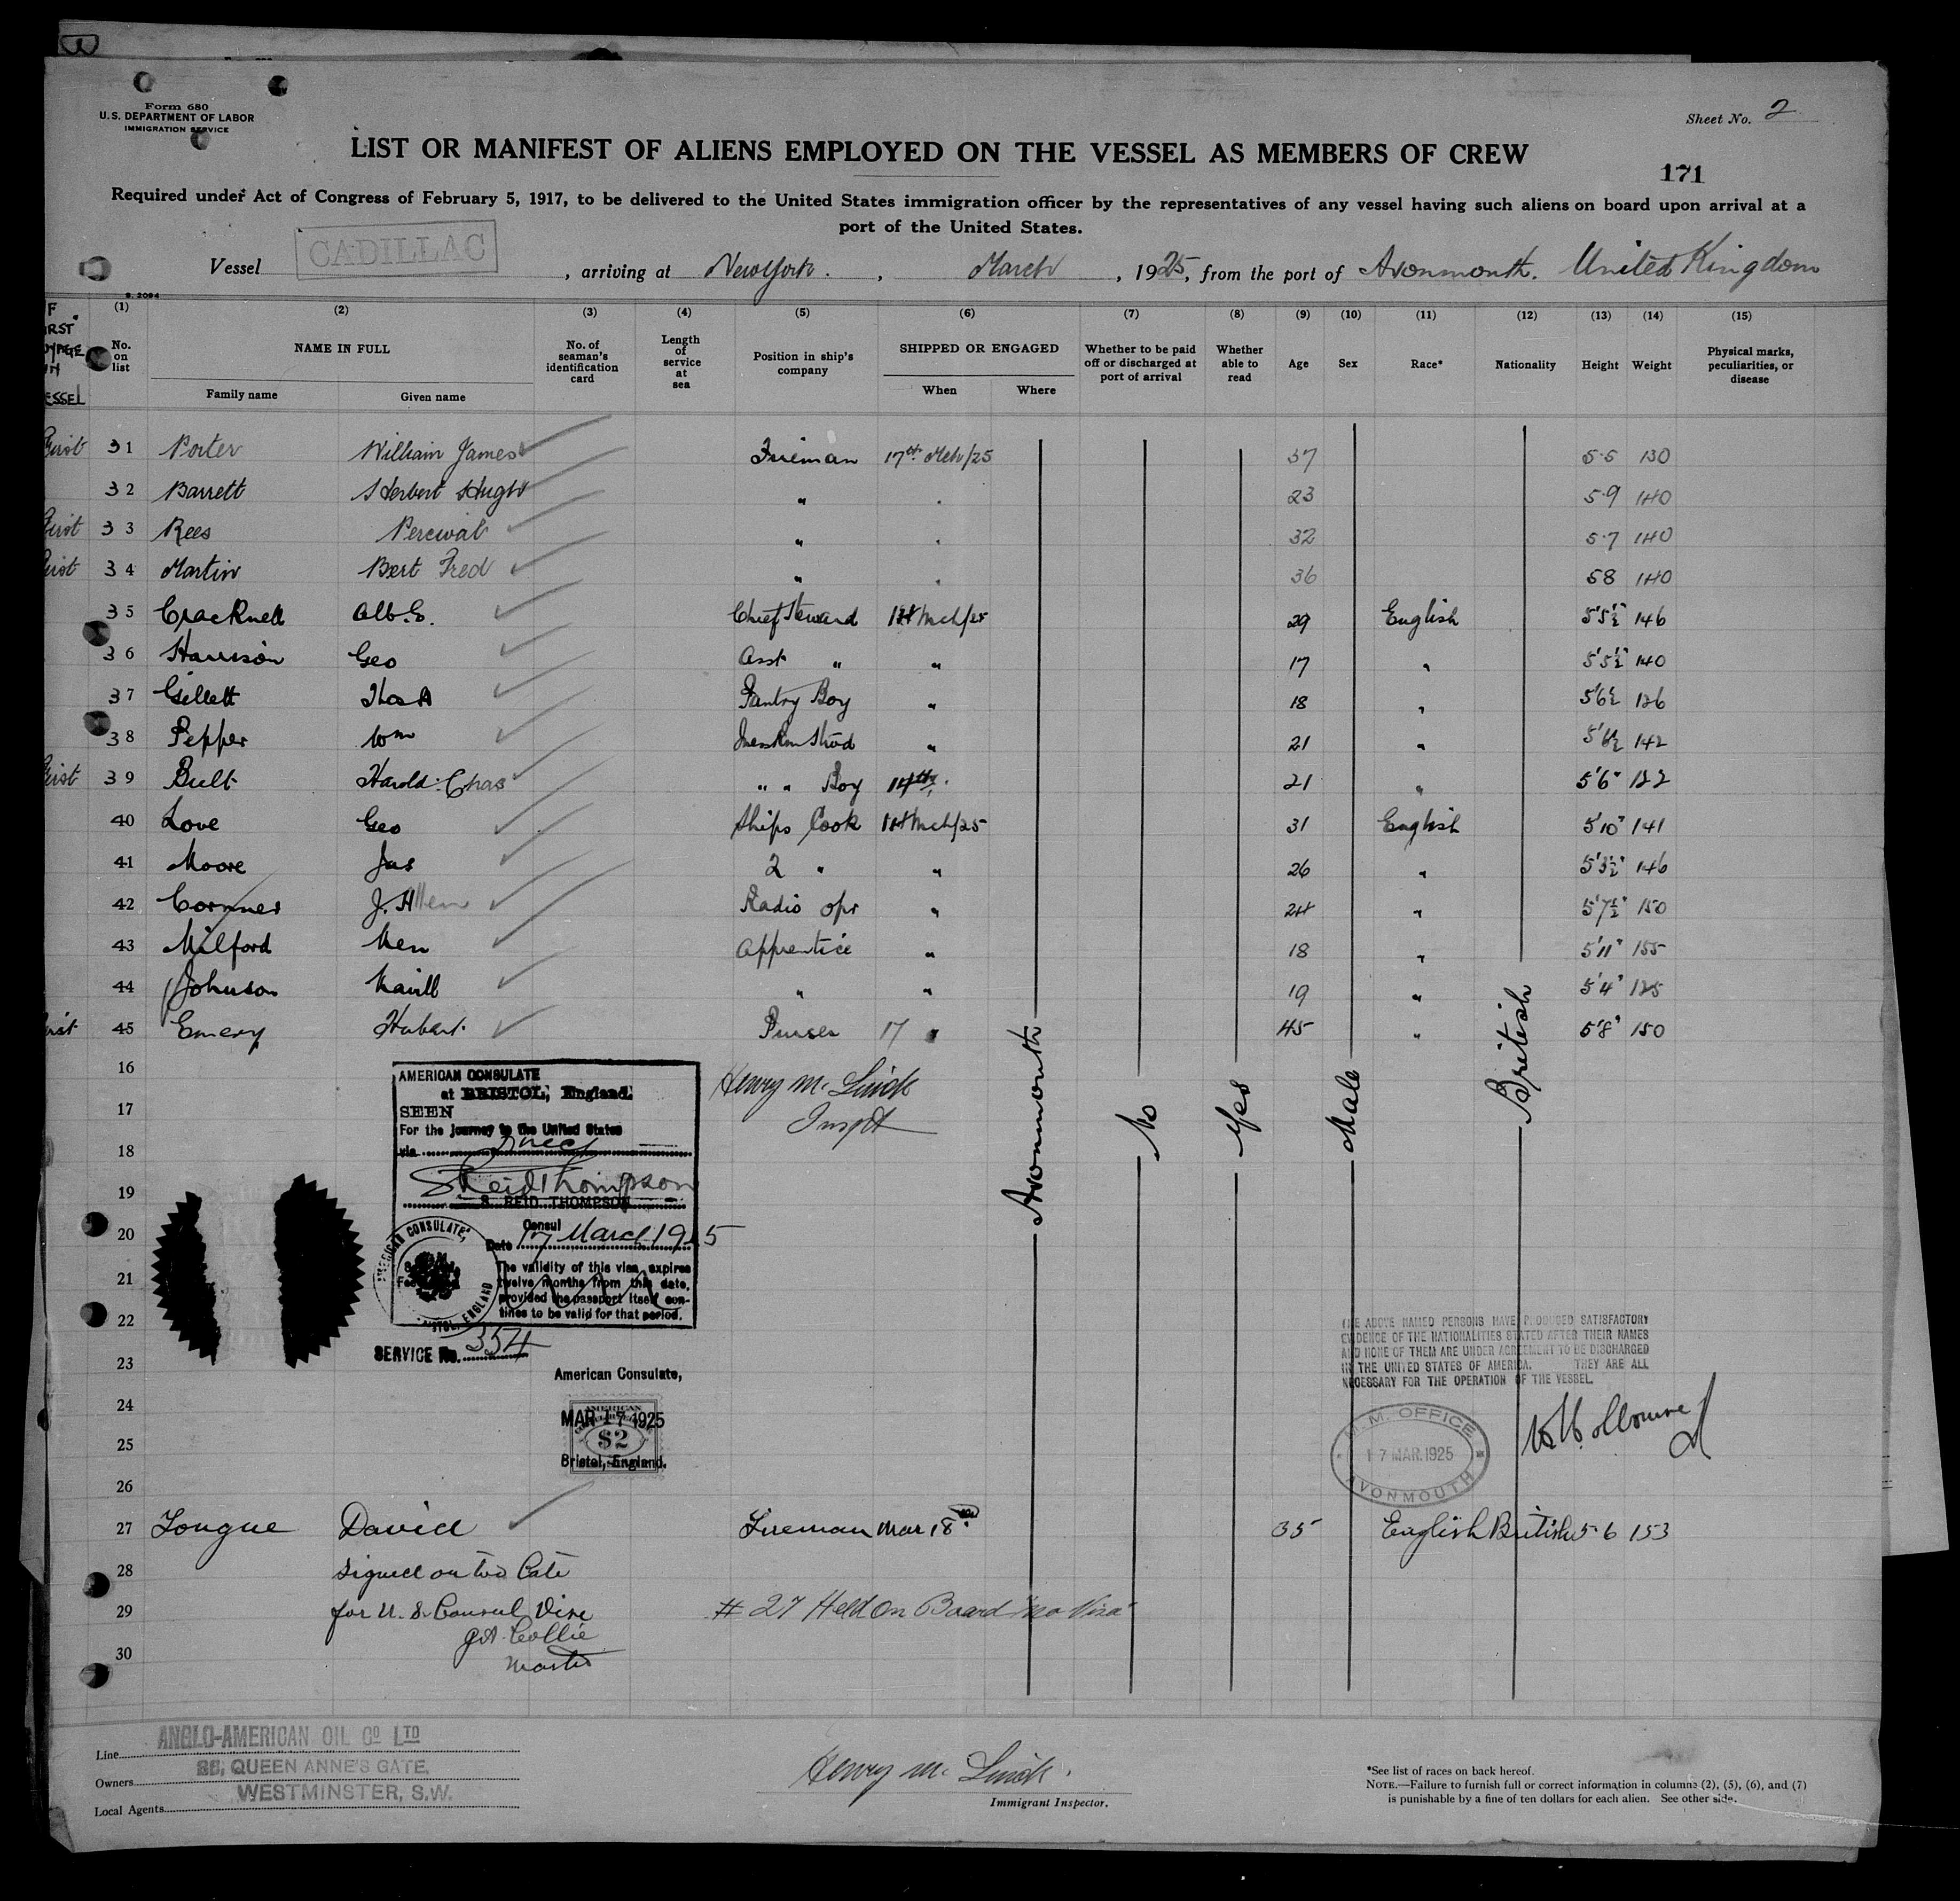 Form 680
U.S. DEPARTMENT OF LABOR
IMMIGRATION SERVICE
Sheet No. 2
LIST OR MANIFEST OF ALIENS EMPLOYED ON THE VESSEL AS MEMBERS OF CREW
171
Required under Act of Congress of February 5, 1917, to be delivered to the United States immigration officer by the representatives of any vessel having such aliens on board upon arrival at a
port of the United States.
Vessel CADILLAC , arriving at New York. , March , 1925, from the port of Avonmouth. United Kingdom
S. 2094
(1) (2) (3) (4) (5) (6) (7) (8) (9) (10) (11) (12) (13) (14) (15)
No. on list NAME IN FULL Family name Given name No. of seaman's identification card Length of service at sea Position in ship's company SHIPPED OR ENGAGED When Where Whether to be paid off or discharged at port of arrival Whether able to read Age Sex Race* Nationality Height Weight Physical marks, peculiarities, or disease
First 31 Porter William James Fireman 17th Mch/25 37 5.5 130
32 Barrett Herbert Hugh " . 23 5.9 140
First 33 Rees Percival " . 32 5.7 140
First 34 Martin Bert Fred " . 36 58 140
35 Cracknell Alb. E. Chief Steward Mch/25 29 English 5'5½" 146
36 Harrison Geo Asst " " 17 " 5'5½" 140
37 Gillett Thos A Pantry Boy " 18 " 5'6½ 126
38 Pepper Wm Messrm Stwd " 21 " 142
First 39 Bult Harold Chas " " Boy 14th. 21 " 5'6" 122
40 Love Geo Ships Cook Mch/25 31 English 5'10" 141
41 Moore Jas 2 " " 26 " 5'3½" 146
42 J. Allen Radio opr " 24 " 5'7½" 150
43 Milford Ken Apprentice " 18 " 5'11" 155
44 Johnson " " 19 " 5'4" 125
First 45 Emery Hubert Purser 17 " 45 " 5'8" 150
Avonmouth No Yes Male British
16
17
18
19
20
21
22
23
24
25
26
AMERICAN CONSULATE
at BRISTOL, England.
SEEN
For the journey to the United States
via direct
S Reid Thompson
S. REID THOMPSON
Consul
Date 17 March 1925
The validity of this visa expires
twelve months from this date,
provided the passport itself con-
tinues to be valid for that period.
AMERICAN CONSULATE, BRISTOL, ENGLAND
SERVICE No. 354
Henry M.
Inspt
American Consulate,
MAR 17 1925
$2
Bristol, England.
THE ABOVE NAMED PERSONS HAVE PRODUCED SATISFACTORY
EVIDENCE OF THE NATIONALITIES STATED AFTER THEIR NAMES
AND NONE OF THEM ARE UNDER AGREEMENT TO BE DISCHARGED
IN THE UNITED STATES OF AMERICA. THEY ARE ALL
NECESSARY FOR THE OPERATION OF THE VESSEL.
M.M. OFFICE
17 MAR. 1925
AVONMOUTH
27 Tongue David Fireman Mar 18th 35 English British 5 6 153
28 Signed on too late
29 for U.S. Consul Vise # 27 Held On Board "no Visa"
G.A. Collie
30 Master
Line ANGLO-AMERICAN OIL CO LTD
Owners 36, QUEEN ANNE'S GATE,
Local Agents WESTMINSTER, S.W.
Henry M.
Immigrant Inspector.
*See list of races on back hereof.
NOTE.—Failure to furnish full or correct information in columns (2), (5), (6), and (7)
is punishable by a fine of ten dollars for each alien. See other side.